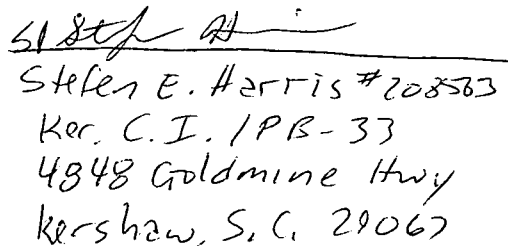 S/ Stefen Harris
Stefen E. Harris #208563
Ker. C.I. / PB-33
4848 Goldmine Hwy
Kershaw, S.C. 29067